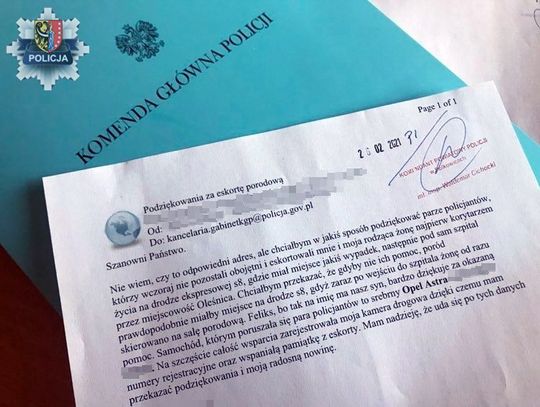 POLICJA
KOMENDA GŁÓWNA POLICJI
Page 1 of 1
26 02 2021
KOMENDANT POWIATOWY POLICJI
mł. insp. Waldemar Cichocki
Podziękowania za eskortę porodową
Od:
Do: kancelaria.gabinetkgp@policja.gov.pl
Szanowni Państwo.
Nie wiem, czy to odpowiedni adres, ale chciałbym w jakiś sposób podziękować parze policjantów,
którzy wczoraj nie pozostali obojętni i eskortowali mnie i moją rodząca żonę najpierw korytarzem
życia na drodze ekspresowej s8, gdzie miał miejsce jakiś wypadek, następnie pod sam szpital
przez miejscowość Oleśnica. Chciałbym przekazać, że gdyby nie ich pomoc, poród
prawdopodobnie miałby miejsce na drodze s8, gdyż zaraz po wejściu do szpitala żonę od razu
skierowano na salę porodową. Feliks, bo tak na imię ma nasz syn, bardzo dziękuje za okazaną
pomoc. Samochód, którym poruszała się para policjantów to srebrny Opel Astra
. Na szczęście całość wsparcia zarejestrowała moja kamera drogowa dzięki czemu mam
numery rejestracyjne oraz wspaniałą pamiątkę z eskorty. Mam nadzieję, że uda się po tych danych
przekazać podziękowania i moją radosną nowinę.